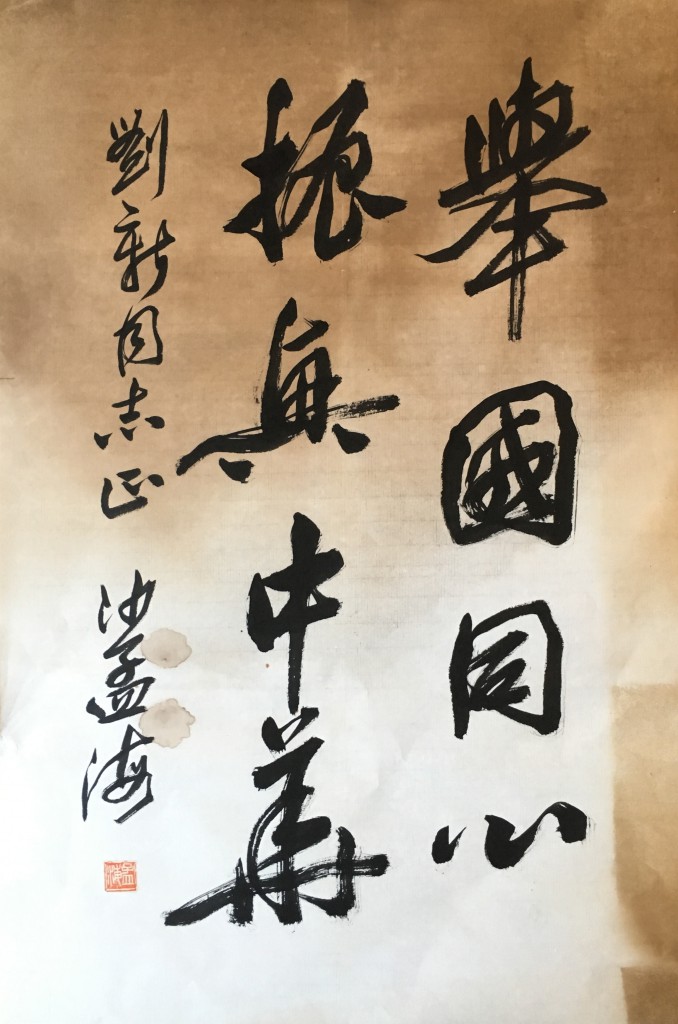 舉國同心
振興中華
劉新同志正
沙孟海
孟海